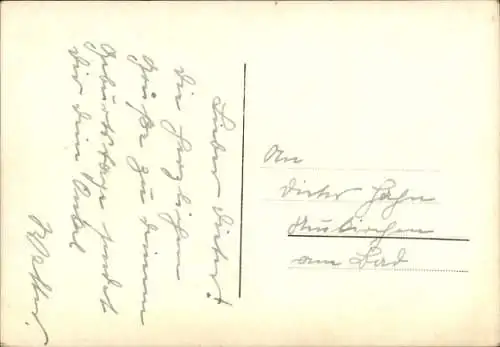 Lieber Dieter!
Die herzlichen
Grüße zu deinem
Geburtstage sendet
Dir dein Onkel
Walter.
An
Dieter Hahn
Neukirchen
am Bad